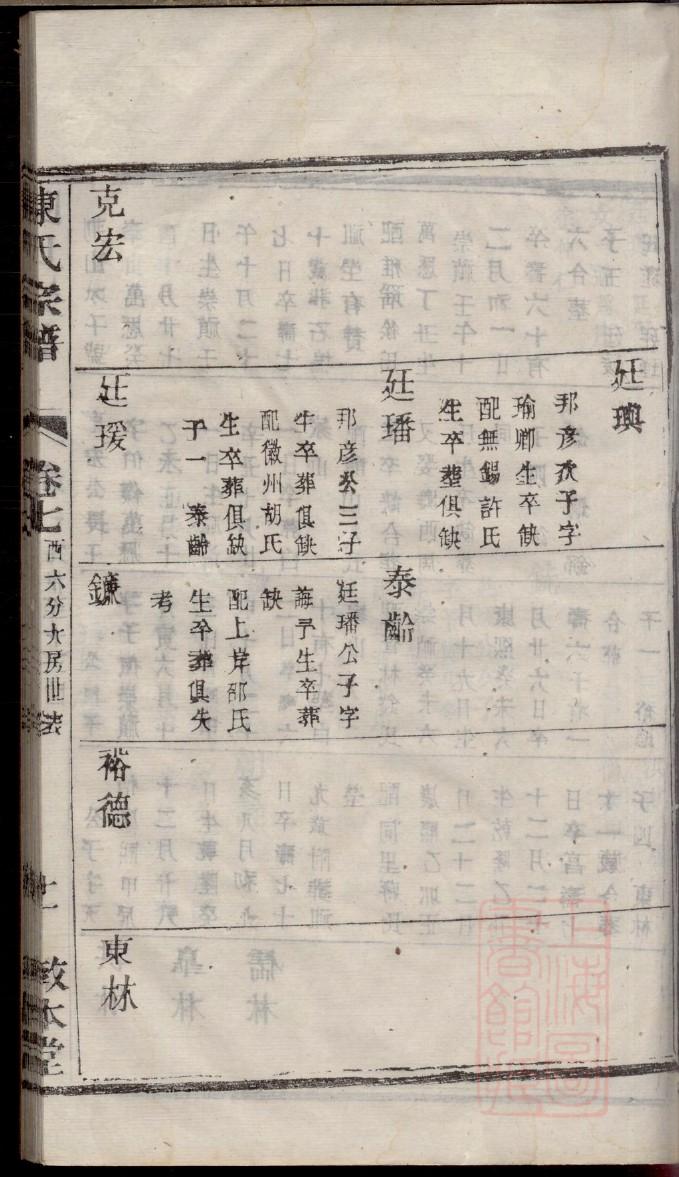 克宏
廷璵
邦彦次子字
瑜卿生卒缺
配無錫許氏
生卒塟俱缺
廷璠
邦彦公三子
生卒葬俱缺
配徽州胡氏
生卒葬俱缺
子一 泰齡
廷瑗
泰齡
廷璠公子字
誨予生卒葬
缺
配上岸邵氏
生卒葬俱失
考
鐮
裕德
東林
陳氏宗譜
卷七
酉六分大房世表
十一
敦本堂
上海圖書館藏